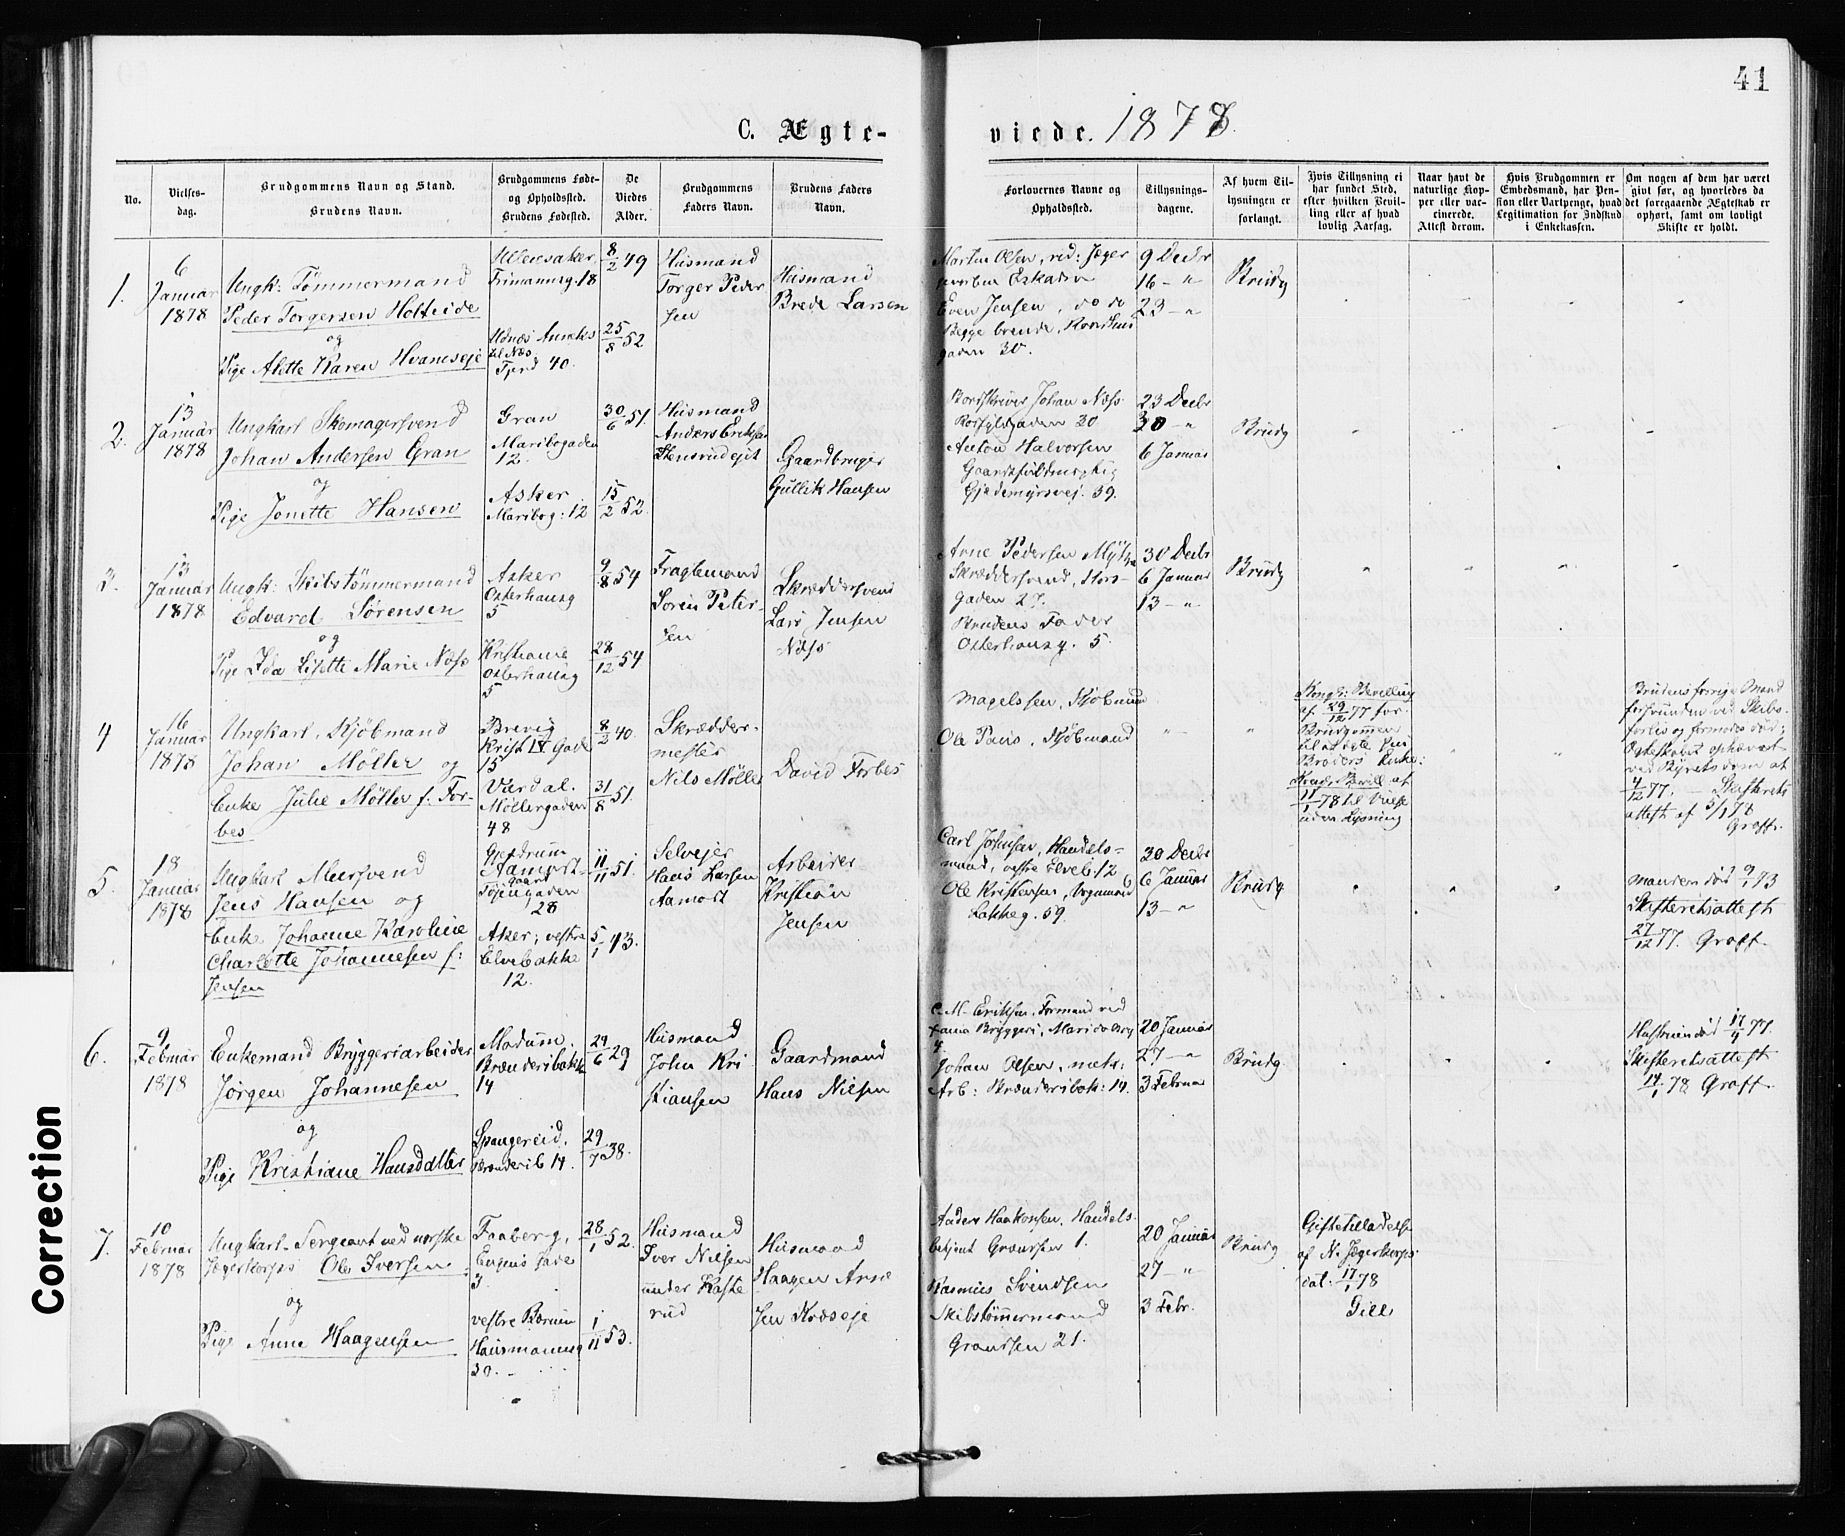 41
C. Ægte-
viede. 1878.
No.
Vielses-
dag.
Brudgommens Navn og Stand.
Brudens Navn.
Brudgommens Føde-
og Opholdssted.
Brudens Fødested.
De
Viedes
Alder.
Brudgommens
Faders Navn.
Brudens Faders
Navn.
Forlovernes Navne og
Opholdssted.
Tillysnings-
dagene.
Af hvem Til-
lysningen er
forlangt.
Hvis Tillysning ei
har fundet Sted,
efter hvilken Bevil-
ling eller af hvad
lovlig Aarsag.
Naar havt de
naturlige Kop-
per eller vac-
cinerede.
Attest derom.
Hvis Brudgommen er
Embedsmand, har Pen-
sion eller Vartpenge, hvad
Legitimation for Indskud
i Enkekassen.
Om nogen af dem har været
givt før, og hvorledes da
det foregaaende Ægteskab er
ophørt, samt om lovligt
Skifte er holdt.
1.
6
Januar
1878
Ungk: Tømmermand
Peder Torgersen Holteide
og
Pige Alette Karen Hvamseje
Ullensaker
Frimannsg. 18
Udnæs Anneks
til Næs
Fjerd 40.
8/2 49
25/8 52
Husmand
Torger Peder
sen
Husmand
Brede Larsen
Martin Olsen, rid: Jæger
Eskadron
Even Jensen, do do
Begge boende,
gaden 30.
9 Decbr
16 - "
23 - "
Brudg
2.
13
Januar
1878
Ungkarl Skomagersvend
Johan Andersen Gran
og
Pige Jonette Hansen
Gran
Maribogaden
12.
Asker
Maribog: 12
30/6 51.
15/2 52.
Husmand
Anders Eriksen
Stensrudejet
Gaardbruger
Gullik Hansen
Bordskriver Johan Næss
30
Anton Halvorsen
Gaardsfuldmægtig
Gjedemyrsvej. 39.
23 Decbr
30 - "
6 Januar
Brudg
3.
13
Januar
1878
Ungk: Skibstømmermand
Edvard Sørensen
og
Pige Ida Lisette Marie Næss
Asker
Osterhausg
5
Kristiania
Osterhausg
5
9/8 54
28/12 54
Fragtemand
Søren Peter-
sen
Skræddersvend
Lars Jensen
Næss
Arne Pedersen
Skræddersvend, Thors-
gaden 27.
Brudens Fader
Osterhausg. 5.
30 Decbr
6 Januar
13 - "
Brudg
4
16
Januar
1878
Ungkarl, Kjøbmand
Johan Møller og
Enke Julie Møller f. For-
bes
Brevig
Krist. 18 Gade
15
Værdal.
Møllergaden
48
8/2 40.
31/8 51.
Skrædder-
mester
Nils Møller
David Forbes
Magelssen, Kjøbmand
Ole Paus, Kjøbmand
Kongl: Bevilling
af 29/12 77 for
Brudgommen
til at ægte sin
Broders Enke.
Kongl: Bevill af
11/1 78 til Vielse
uden Lysning
Brudens forrige Mand
forsvunden ved Skibs-
forlis og formodes død;
Ægteskabet ophævet
ved Byretsdom af
4/12 77. - Skifterets
attest af 5/1 78
Graff.
5.
18
Januar
1878
Ungkarl Mursvend
Jens Hansen og
Enke Johanne Karoline
Charlotte Johannesen f:
Jensen
Gjerdrum
Aamodt-
gaard
Tøjengaden
28
Aker, vestre
Elvebakke
12.
11/11 51.
5/1 43.
Selvejer
Hans Larsen
Aamodt
Arbeider
Kristian
Jensen
Carl Johnsen, Handels-
mand, vestre Elveb: 12
Ole Kristensen, Vognmand
Lakkeg. 59.
30 Decbr
6 Januar
13 - "
Brudg
Manden død 9/1 73
Skifteretsattest
27/12 77. Graff.
6.
9
Februar
1878
Enkemand Bryggeriarbeider
Jørgen Johannesen
og
Pige Kristiane Hansdatter
Modum.
Brænderibakke
14
Spangereid.
Brænderib 14.
24/6 29
29/7 38.
Husmand
John Kri
stiansen
Gaardmand
Hans Nielsen
C. M. Eriksen, Formand ved
Bryggeri, Maridalsvej
4
Johan Olsen, mek:
Arb: Brænderibak: 14.
20 Januar
27 - "
3 Februar
Brudg
Hustruen død 17/4 77.
Skifteretsattest
14/1 78 Graff.
7.
10
Februar
1878
Ungkarl. Sergeant ved norske
Jægerkorps Ole Iversen
og
Pige Anne Haagensen
Faaberg,
Eugens Gade
3.
vestre Bærum
Hausmannsg
20.
28/1 52.
1/11 53.
Husmand
Iver Nilsen
under Kaste
rud
Husmand
Haagen Arne
sen
Anders Haakonsen, Handels-
betjent Grændsen 1.
Rasmus Svendsen
Skibstømmermand
Grændsen 21.
20 Januar
27 - "
3 Febr.
Brudg
Giftetilladelse
af N. Jægerkorps
dat. 17/1 78
Gill
Correction